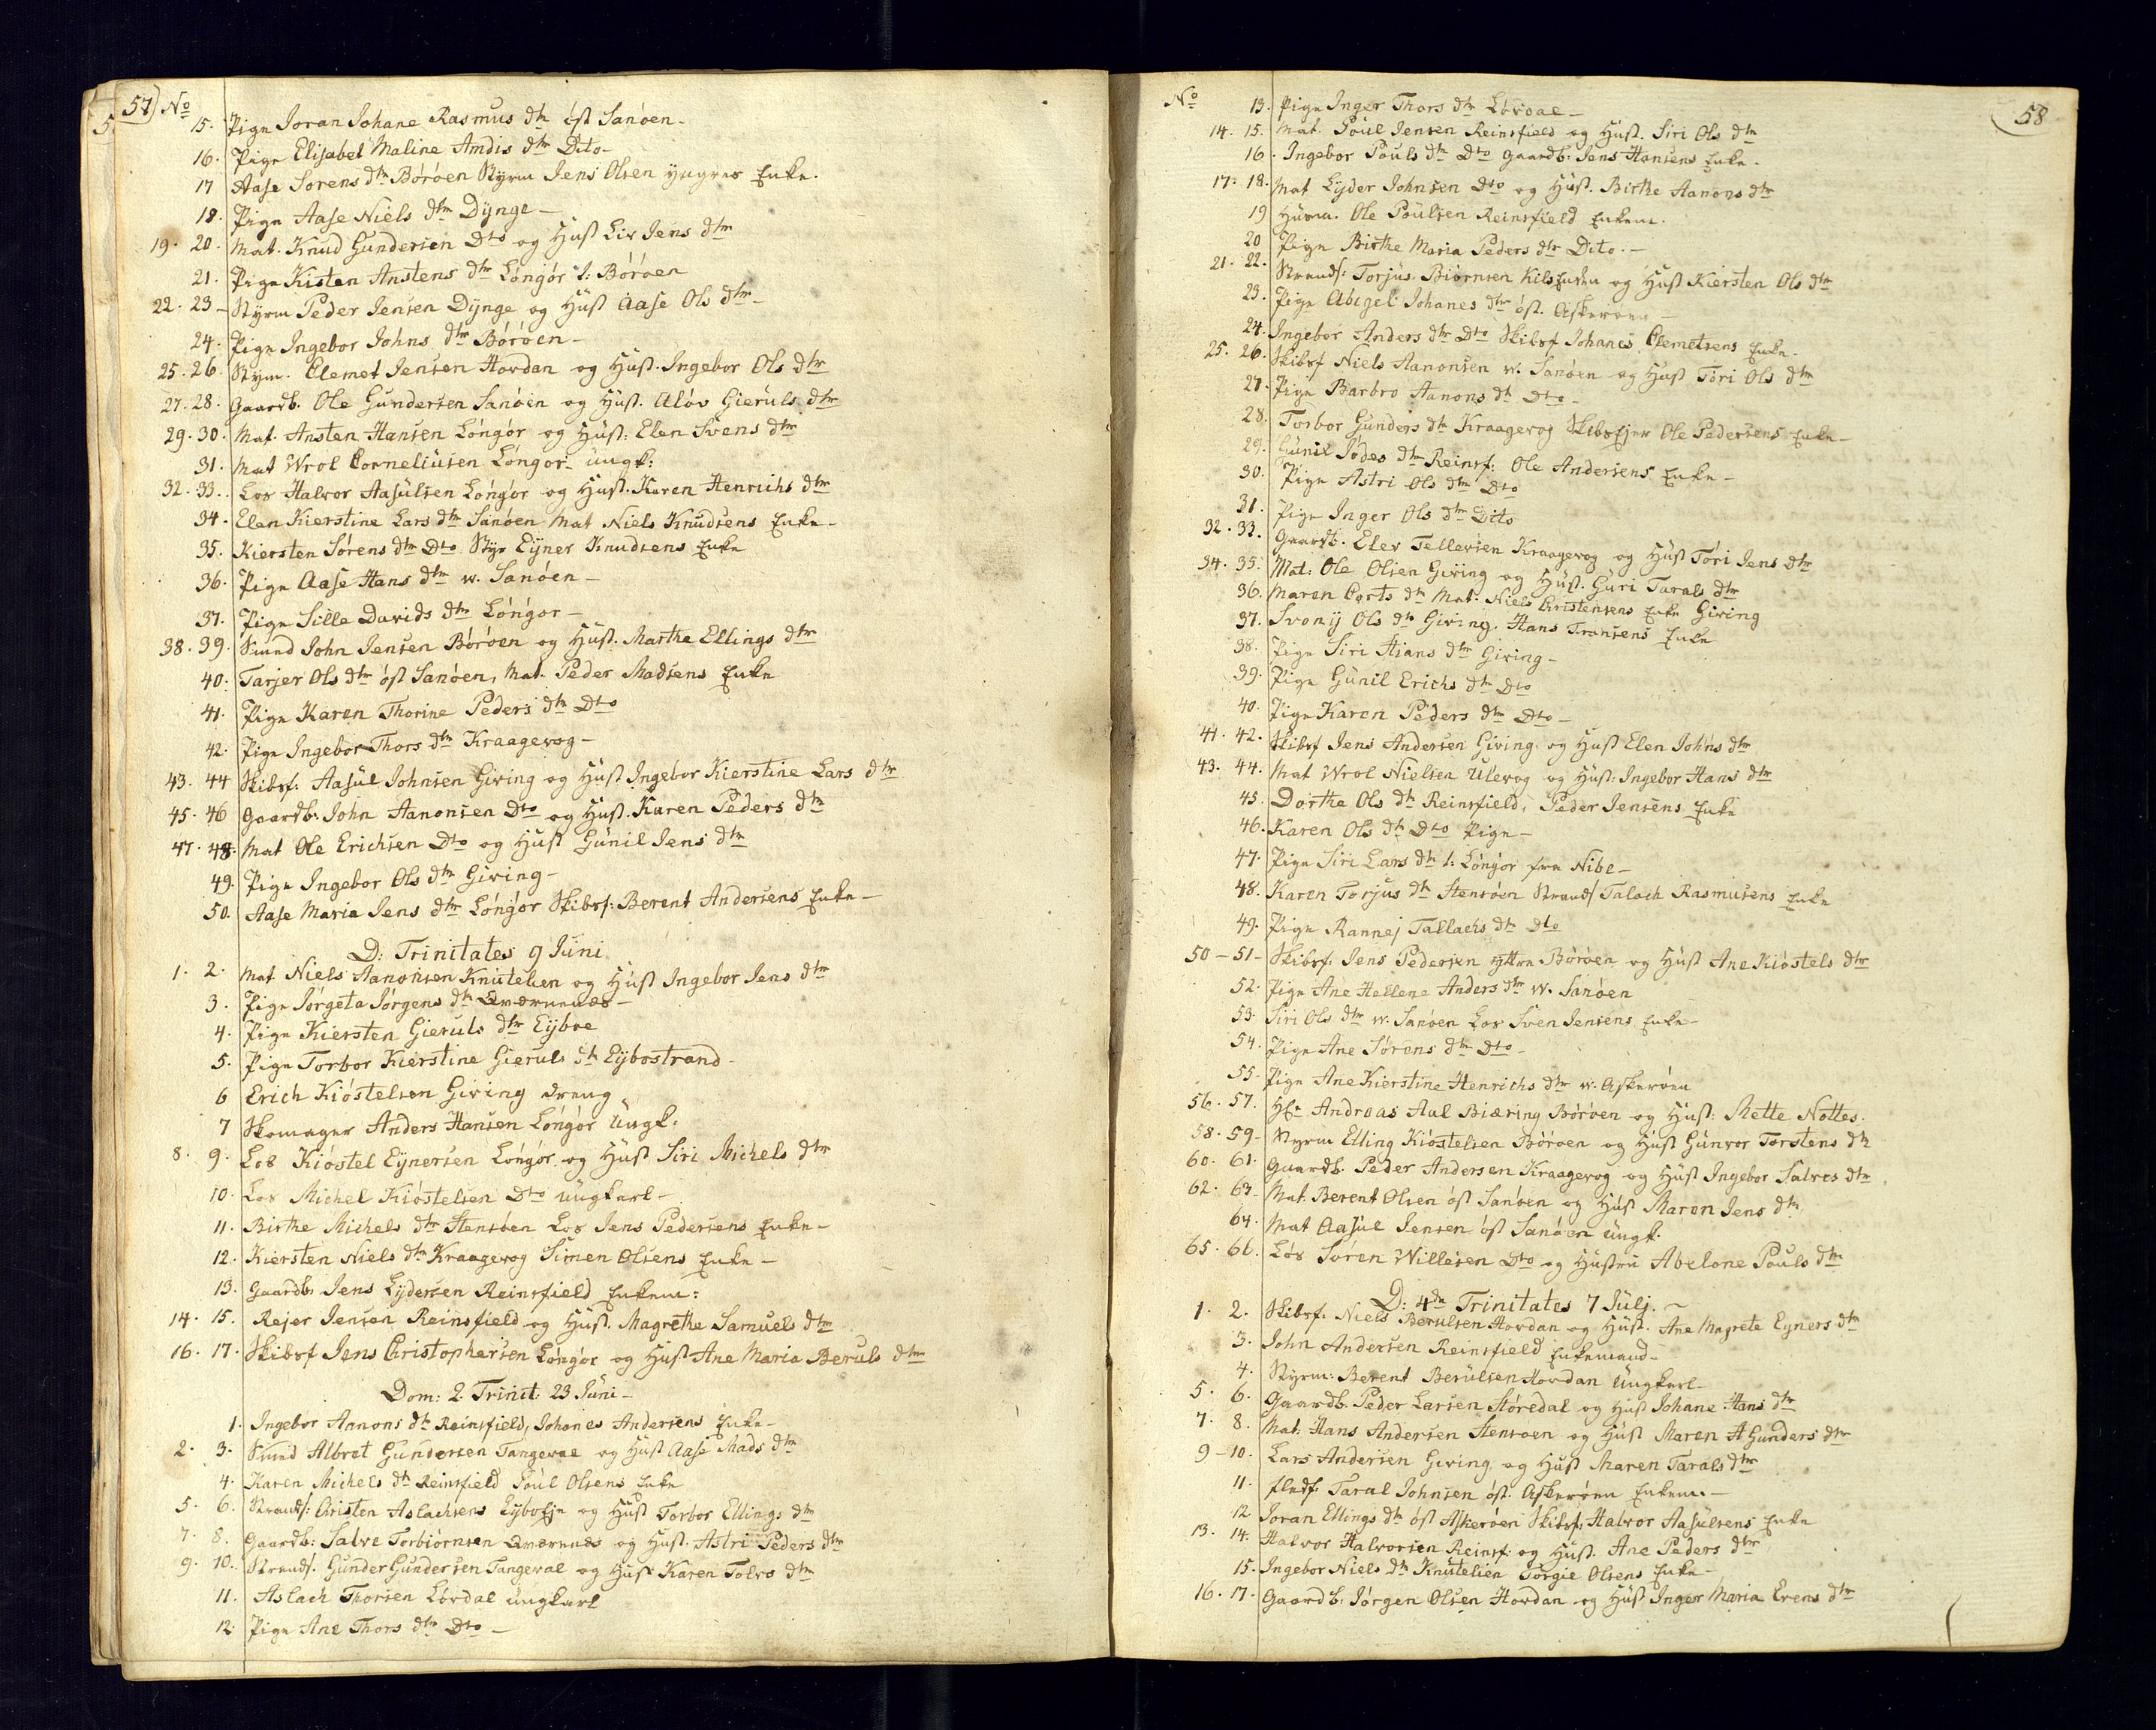 57) No
15. Pige Joran Johane Rasmus dtr öst Sanöen -
16. Pige Elisabet Maline Amdis dtr Dito -
17 Aase Sorens dtr Böröen Styrm Jens Olsen yngres Enke.
18. Pige Aase Niels dtr Dynge -
19. 20. Mat. Knud Gundersen Dto og Hust Liv Jens dtr
21. Pige Kisten Anstens dtr Löngör i: Böröen
22. 23 - Styrm Peder Jensen Dynge og Hust Aase Ols dtr -
24. Pige Ingebor Johns dtr Böröen -
25. 26. Stym. Clemet Jensen Hovdan og Hust. Ingebor Ols dtr
27. 28. Gaardb. Ole Gundersen Sanöen og Hust. Alöv Gieruls dtr
29. 30. Mat. Ansten Hansen Löngör og Hust: Elen Svens dtr
31. Mat Wrol Corneliusen Löngor ungk:
32. 33. Los Halvor Aasulsen Löngör og Hust. Karen Henrichs dtr
34. Elen Kierstine Lars dtr Sanöen Mat Niels Knudsens Enke -
35. Kiersten Sörens dtr Dto Styr Eyner Knudsens Enke
36. Pige Aase Hans dtr w. Sanöen -
37. Pige Sille Davids dtr Löngor -
38. 39. Smed John Jensen Böröen og Hust. Marthe Ellings dtr
40. Tarjer Ols dtr öst Sanöen, Mat. Peder Madsens Enke
41. Pige Karen Thorine Peders dtr Dto
42. Pige Ingebor Thors dtr Kraagevog -
43. 44 Skibsf: Aasul Johnsen Giving og Hust Ingebor Kierstine Lars dtr
45. 46 Gaardb: John Aanonsen Dto og Hust. Karen Peders dtr
47. 48. Mat Ole Erichsen Dto og Hust Gunil Jens dtr
49. Pige Ingebor Ols dtr Giving -
50. Aase Maria Jens dtr Löngör Skibsf: Berent Andersens Enke -
D: Trinitates 9 Juni
1. 2. Mat Niels Aanonsen Knutelien og Hust Ingebor Jens dtr
3. Pige Jörgeta Jörgens dtr Qværnenæs -
4. Pige Kiersten Gieruls dtr Eyboe
5. Pige Torbor Kierstine Gieruls dtr Eybostrand -
6 Erich Kiöstelsen Giving dreng
7 Skomager Anders Hansen Löngör ungk.
8. 9. Los Kiöstel Eynersen Löngör og Hust Siri Michels dtr
10. Los Michel Kiöstelsen Dto ungkarl -
11. Birthe Michels dtr Stensöen Los Jens Pedersens Enke -
12. Kiersten Niels dtr Kraagevog Simen Olsens Enke -
13. Gaardb. Jens Lydersen Reinsfield Enkem:
14. 15. Rejer Jensen Reinsfield og Hust. Magrethe Samuels dtr
16. 17. Skibsf Jens Christophersen Löngör og Hust Ane Maria Beruls dtr
Dom: 2. Trinit: 23 Juni -
1. Ingebor Aanons dtr Reinsfield, Johanes Andersens Enke -
2. 3. Smed Albret Gundersen Tangevae og Hust Aase Mads dtr
4. Karen Michels dtr Reinsfield Poul Olsens Enke
5. 6. Strands: Christen Aslachsens og Hust Torbor Ellings dtr
7. 8. Gaardb: Salve Torbiörnsen Qværnenæs og Hust. Astri Peders dtr
9. 10. Strands. Gunder Gundersen Tangeval og Hust Karen Tolvs dtr
11. Aslach Thorsen Lövdal ungkarl
12. Pige Ane Thors dtr Dto -
No 58
13. Pige Inger Thors dtr Lövdal -
14. 15. Mat. Poul Jensen Reinsfield og Hust. Siri Ols dtr
16. Ingebor Pouls dtr Dto Gaardb: Jens Hansens Enke.
17. 18. Mat Lyder Johnsen Dto og Hust. Birthe Aanons dtr
19 Huusm. Ole Poulsen Reinsfield Enkem.
20 Pige Birthe Maria Peders dtr Dito. -
21. 22. Strands: Torjus Biörnsen og Hust Kiersten Ols dtr
23. Pige Abigel Johanes dtr öst. Askeröen -
24. Ingebor Anders dtr Dto Skibsf Johanes Clemetsens Enke.
25. 26. Skibsf Niels Aanonsen w. Sanöen og Hust Töri Ols dtr
27. Pige Barbro Aanons dtr Dto -
28. Torbor Gunders dtr Kraagevog Ole Pedersens Enke -
29. Gunil dtr Reinsf: Ole Andersens Enke -
30. Pige Astri Ols dtr Dto
31. Pige Inger Ols dtr Dito
32. 33. Gaardb. Elev Tellevsen Kraagevog og Hust Töri Jens dtr
34. 35. Mat: Ole Olsen Giving og Hust. Guri Tarals dtr
36. Maren Corts dtr Mat: Niels Christensens Enke Giving
37. Svonij Ols dtr Giving. Hans Transens Enke
38. Pige Siri Hians dtr Giving -
39. Pige Gunil Erichs dtr Dto
40. Pige Karen Peders dtr Dto -
41. 42. Skibsf Jens Andersen Giving og Hust Elen Johns dtr
43. 44. Mat Wrol Nielsen Ulevog og Hust: Ingebor Hans dtr
45. Dorthe Ols dtr Reinsfield, Peder Jensens Enke
46. Karen Ols dtr Dto Pige -
47. Pige Siri Lars dtr i: Löngör fra Nibe -
48. Karen Torjus dtr Stensöen Strands Talach Rasmusens Enke
49. Pige Rannej Tallachs dtr Dto
50 - 51 - Skibsf: Jens Pedersen yttre Böröen og Hust Ane Kiöstels dtr
52. Pige Ane Hellene Anders dtr w. Sanöen
53. Siri Ols dtr w. Sanöen Los Sven Jensens Enke -
54. Pige Ane Sörens dtr Dto -
55. Pige Ane Kierstine Henrichs dtr w. Askeröen
56. 57. Hr. Andreas Aal Biæring Böröen og Hust: Mette Nottes.
58. 59 - Styrm Elling Kiöstelsen Böröen og Hust Gunvor Torstens dtr
60. 61. Gaardb. Peder Andersen Kraagevog og Hust Ingebor Salves dtr
62. 63 - Mat. Berent Olsen öst Sanöen og Hust Maren Jens dtr
64. Mat Aasul Jensen öst Sanöen ungk.
65. 66. Los Sören Willesen Dto og Hustru Abelone Pouls dtr
D: 4de Trinitates 7 Julj. -
1. 2. Skibsf. Niels Berulsen Hovdan og Hust. Ane Magrete Eyners dtr
3. John Andersen Reinsfield Enkemand -
4. Styrm: Berent Berulsen Hovdan ungkarl -
5. 6. Gaardb. Peder Larsen Störedal og Hust Johane Hans dtr
7. 8. Mat: Hans Andersen Stensoen og Hust Maren H Gunders dtr
9 - 10. Lars Andersen Giving og Hust Maren Tarals dtr
11. Taral Johnsen öst. Askeröen Enkem. -
12 Joran Ellings dtr öst Askeröen Skibsf: Halvor Aasulsens Enke
13. 14. Halvor Halvorsen Reinsf: og Hust. Ane Peders dtr
15. Ingebor Niels dtr Knutelien Torgie Olsens Enke -
16. 17. Gaardb: Jörgen Olsen Hovdan og Hust Inger Maria Evens dtr